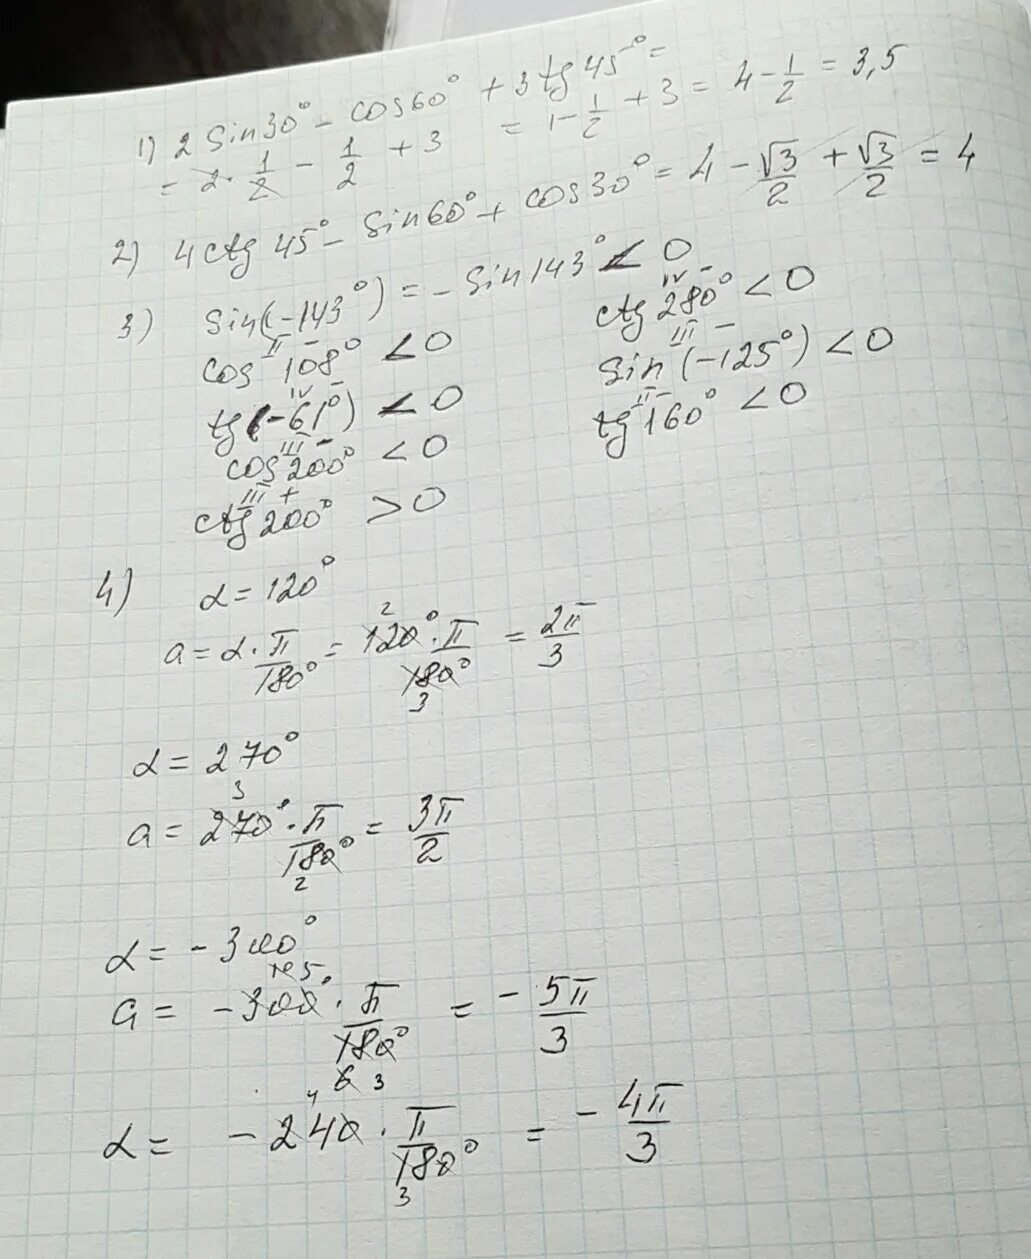 1) 2 sin30° - cos60° + 3 tg 45° =
= 2 · 1/2 - 1/2 + 3 = 1 - 1/2 + 3 = 4 - 1/2 = 3,5
2) 4 ctg 45° - sin60° + cos30° = 4 - √3/2 + √3/2 = 4
3) sin(-143°) = - sin 143° < 0
cos 108° < 0
II -
tg (-61°) < 0
IV -
cos 200° < 0
III -
ctg 200° > 0
III +
ctg 280° < 0
IV -
sin (-125°) < 0
III -
tg 160° < 0
II -
4) α = 120°
a = α · π/180° = 120° · π/180° = 2π/3
2
3
α = 270°
a = 270° · π/180° = 3π/2
3
2
α = - 300°
a = - 300° · π/180° = - 5π/3
10 5
6 3
α = - 240 · π/180° = - 4π/3
4
3